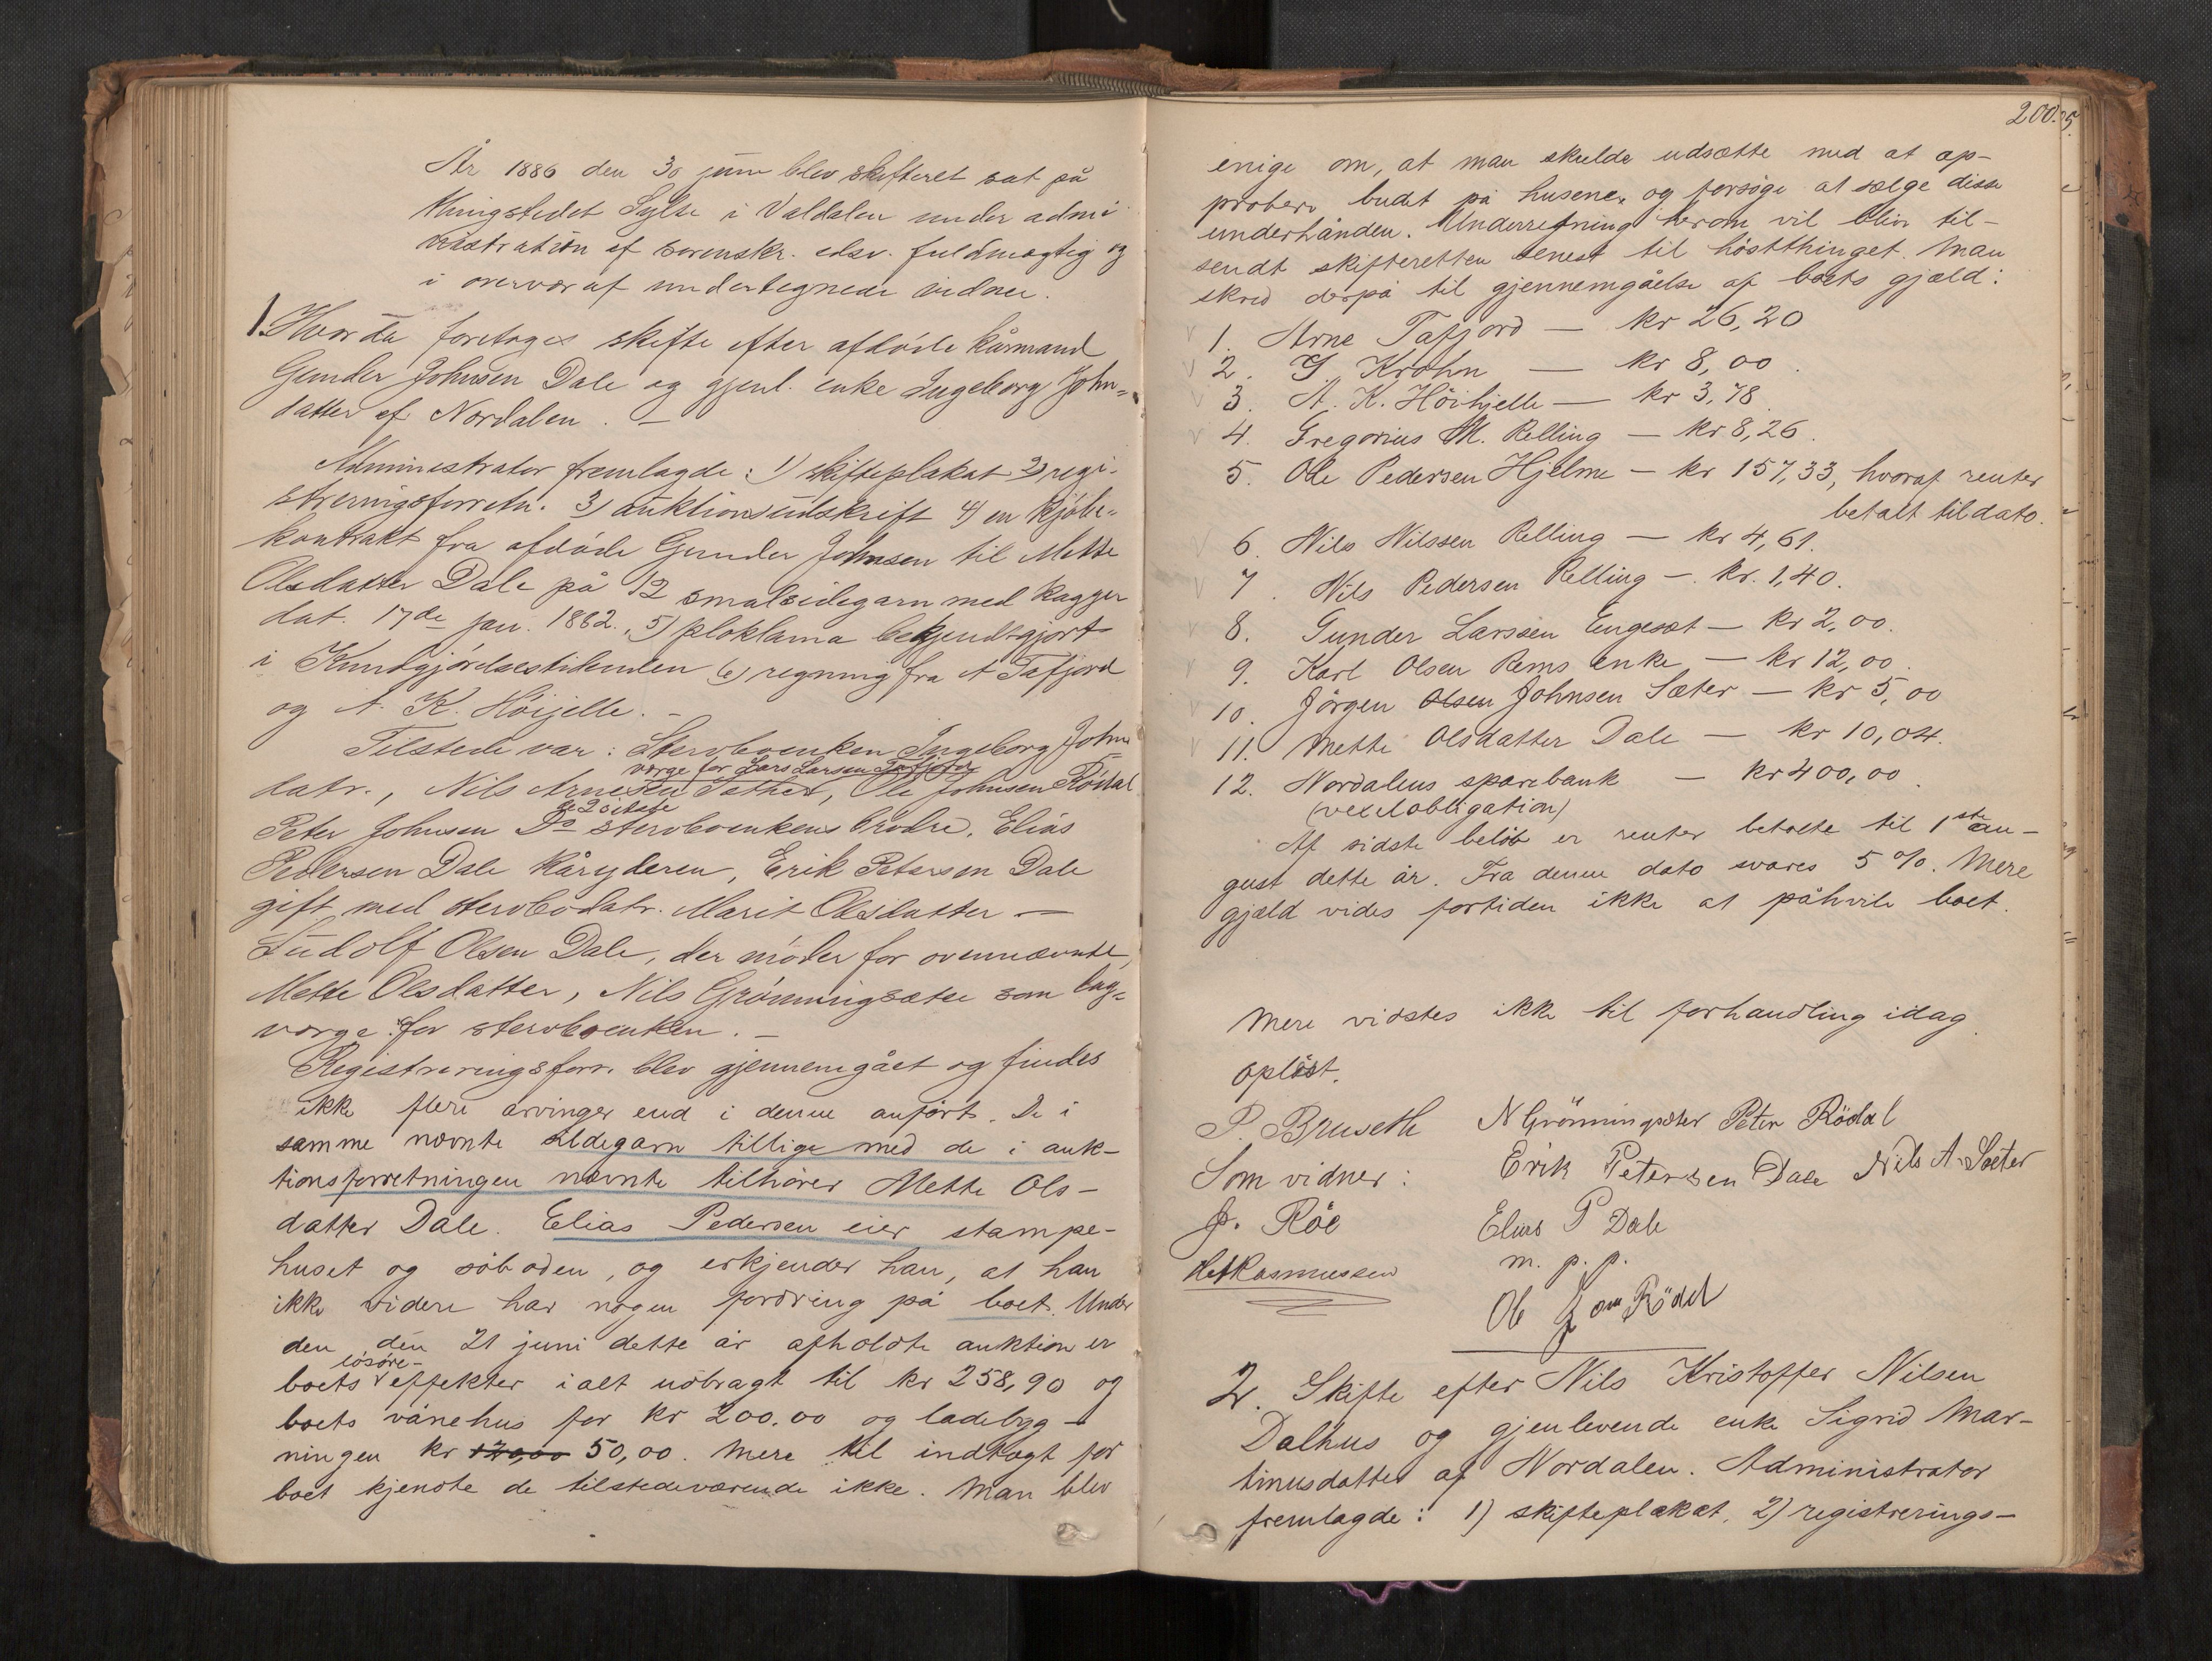 År 1886 den 30 juni blev skifteret sat på
thingstedet Sylte i Valdalen under admi
nistration af sorenskr. edsv. fuldmægtig og
i overvær af undertegnede vidner.
1. Hvorda foretoges skifte efter afdøde kårmand
Gunder Johnsen Dale og gjenl. enke Ingeborg John-
datter af Nordalen. —
Administrator fremlagde: 1) skifteplakat 2) regi-
streringsforretn. 3) auktionsudskrift 4) en kjøbe-
kontrakt fra afdøde Gunder Johnsen til Mette
Olsdatter Dale på 12 smalsidegarn med kagger
dat. 17de jan. 1862. 5) ploklama bekjendtgjort
i Kundgjørelsestidenden 6) regning fra A Tafjord
og A. K. Høijelle. —
Tilstede var: Sterboenken Ingeborg John
værge for Lars Larsen Tafjord
datr., Nils Arnesen Sæther, Ole Johnsen Rödal
de 2 sidste
Peter Johnsen Do sterboenkens brødre, Elias
Pedersen Dale kåryderen, Erik Petersen Dale
gift med sterbodatr. Marit Olesdatter —
Ludolf Olsen Dale, der møder for ovennævnte
Mette Olsdatter, Nils Grønningsæter som lag-
værge for sterboenken. —
Registreringsforr. blev gjennemgået og findes
ikke flere arvinger end i denne anført. De i
samme nævnte sildegarn tillige med de i auk-
tionsforretningen nævnte tilhører Mette Ols-
datter Dale. Elias Pedersen eier stampe-
huset og söboden, og erkjender han, at han
ikke videre har nogen fordring på boet. Under
den den 21 juni dette år afholdte auktion er
lösøre-
boets effekter ialt udbragt til kr 258,90 og
boets vånehus for kr 200.00 og ladebyg-
ningen kr 120,00 50,00. Mere til indtægt for
boet kjendte de tilstedeværende ikke. Man blev
200.
enige om, at man skulde udsætte med at ap-
probere budet på husene, og forsøge at sælge disse
underhånden. Underretning herom vil blive til-
sendt skifteretten senest til høstthinget. Man
skred derpå til gjennemgåelse af boets gjæld:
1. Arne Tafjord — kr 26,20
2. G Krohn — kr 8,00.
3. A. K. Höihjelle — kr 3,78
4. Gregorius M. Relling — kr 8,26.
5. Ole Pedersen Hjelme — kr 157,33, hvoraf renter
betalt til dato.
6. Nils Nilssen Relling — kr 4,61.
7. Nils Pedersen Relling —. kr. 1,40.
8. Gunder Larssen Engeset — kr 2,00.
9. Karl Olsen Rems enke — kr 12,00.
10. Jörgen Olsen Johnsen Sæter — kr 5,00
11. Mette Olsdatter Dale — kr 10,04.
12. Nordalens sparebank — kr 400,00.
(vexelobligation)
Af sidste beløb er renter betalte til 1ste au-
gust dette år. Fra denne dato svares 5 %. Mere
gjæld vides fortiden ikke at påhvile boet.
Mere vidstes ikke til forhandling idag.
Opløst.
P. Bruseth N Grönningsæter Peter Rödal
Som vidner: Erik Petersen Dale Nils A. Sæter
P. Röe Elias P Dale
Rasmussen m. p. p.
Ole Rödal
2. Skifte efter Nils Kristoffer Nilsen
Dalhus og gjenlevende enke Sigrid Mar-
tinusdatter af Nordalen. Administrator
fremlagde: 1) skifteplakat, 2) registrerings-